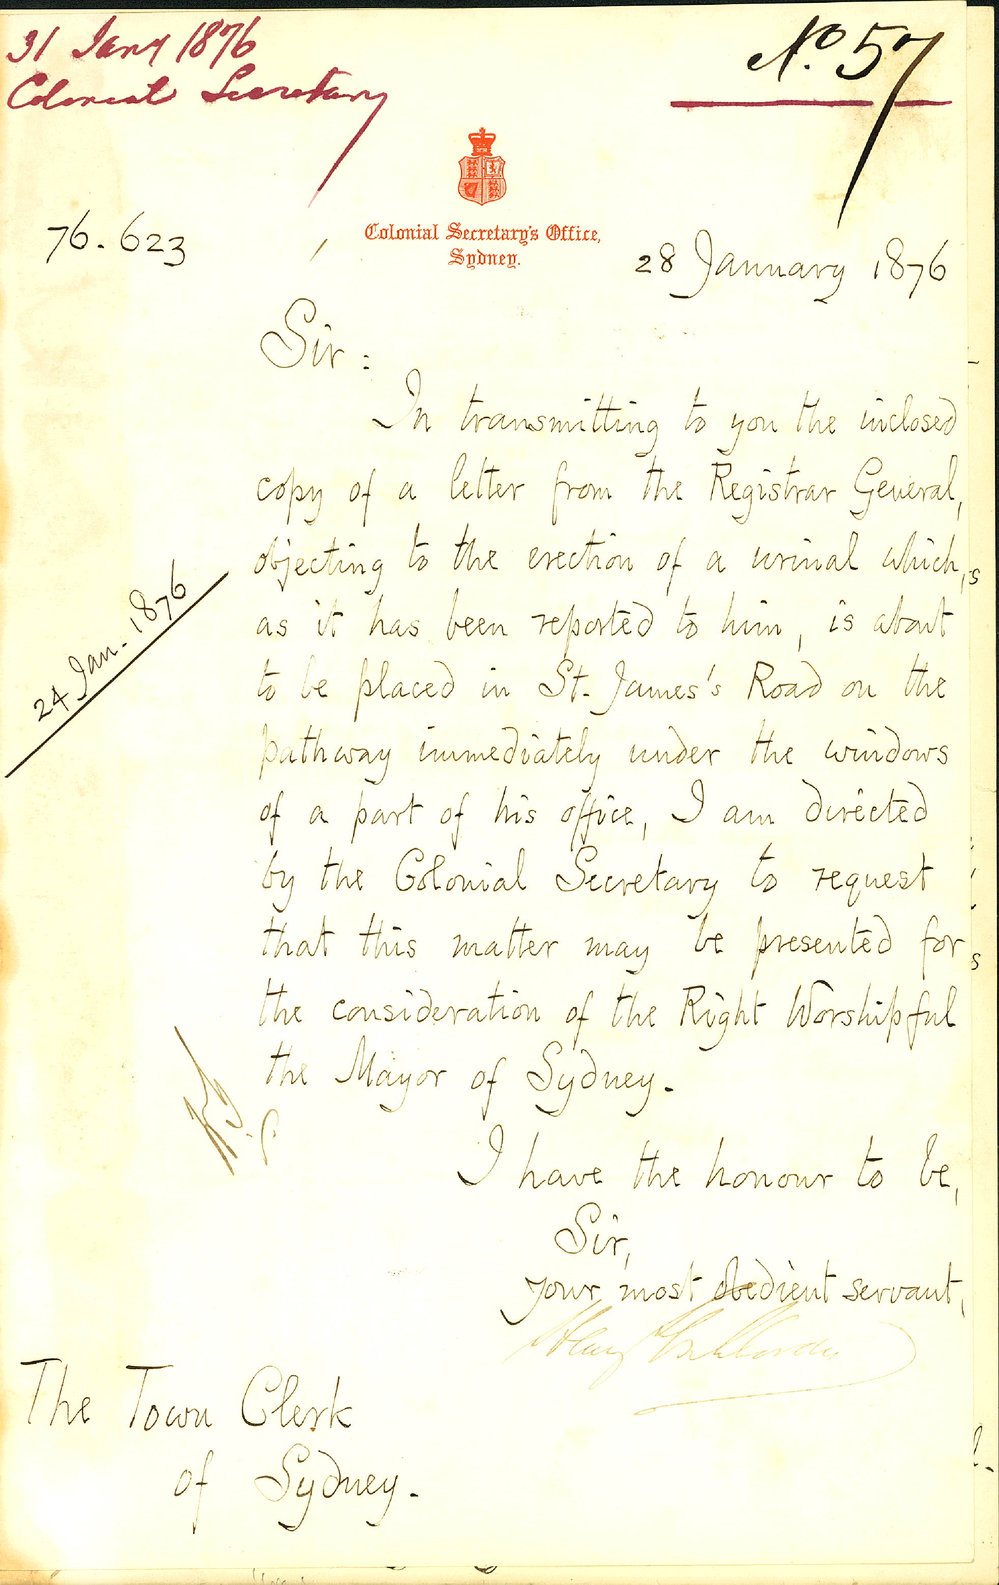 31 Jany 1876
Colonial Secretary
No. 57
76.623
Colonial Secretary's Office,
Sydney.
28 January 1876
Sir:
In transmitting to you the inclosed
copy of a letter from the Registrar General,
objecting to the erection of a urinal which,
24 Jan. 1876
as it has been reported to him, is about
to be placed in St. James's Road on the
pathway immediately under the windows
of a part of his office, I am directed
by the Colonial Secretary to request
that this matter may be presented for
the consideration of the Right Worshipful
the Mayor of Sydney.
I have the honour to be,
Sir,
your most obedient servant,
The Town Clerk
of Sydney.